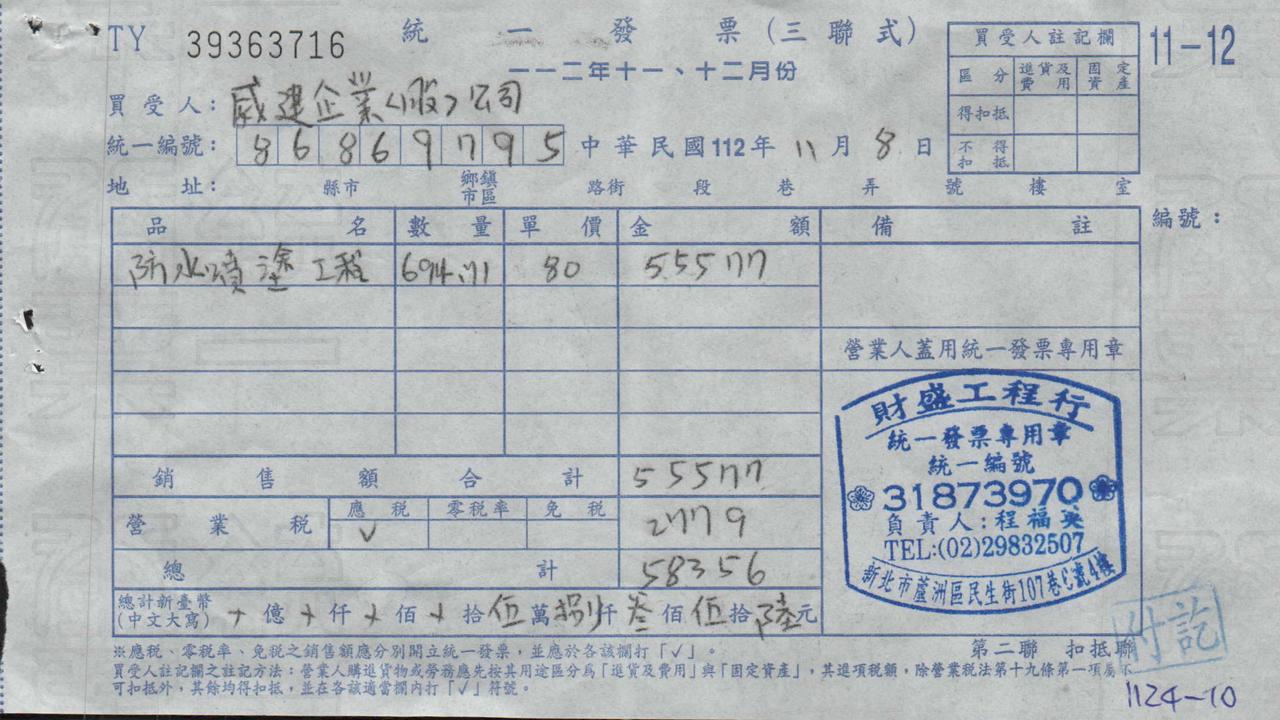 TY 39363716 統一發票(三聯式)
一一二年十一、十二月份
11-12
買受人註記欄
區分 進貨及費用 固定資產
得扣抵
不得扣抵
買受人: 威建企業(股)公司
統一編號: 86869795 中華民國112年 11月 8日
地址: 縣市 鄉鎮市區 路街 段 巷 弄 號 樓 室
品名 數量 單價 金額 備註 編號:
防水噴塗工程 694.71 80 55577
營業人蓋用統一發票專用章
銷售額合計 55577
營業稅 應稅 零稅率 免稅 2779
V
總計 58356
總計新臺幣(中文大寫) 億 仟 佰 拾 伍萬 捌仟 叁佰 伍拾 陸元
財盛工程行
統一發票專用章
統一編號
31873970
負責人:程福英
TEL:(02)29832507
新北市蘆洲區民生街107巷C號4樓
※應稅、零稅率、免稅之銷售額應分別開立統一發票,並應於各該欄打「✓」。
第二聯 扣抵聯
買受人註記欄之註記方法:營業人購進貨物或勞務應先按其用途區分為「進貨及費用」與「固定資產」,其進項稅額,除營業稅法第十九條第一項屬不
可扣抵外,其餘均得扣抵,並在各該適當欄內打「✓」符號。
付訖
1124-10